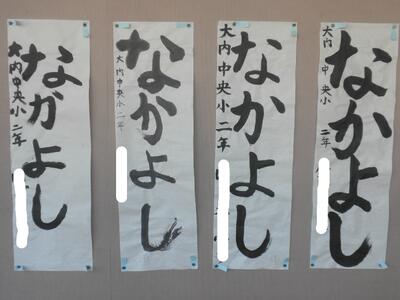 なかよし
大内中央小二年
なかよし
大内中央小二年
なかよし
大内中央小二年
なかよし
大内中央小二年